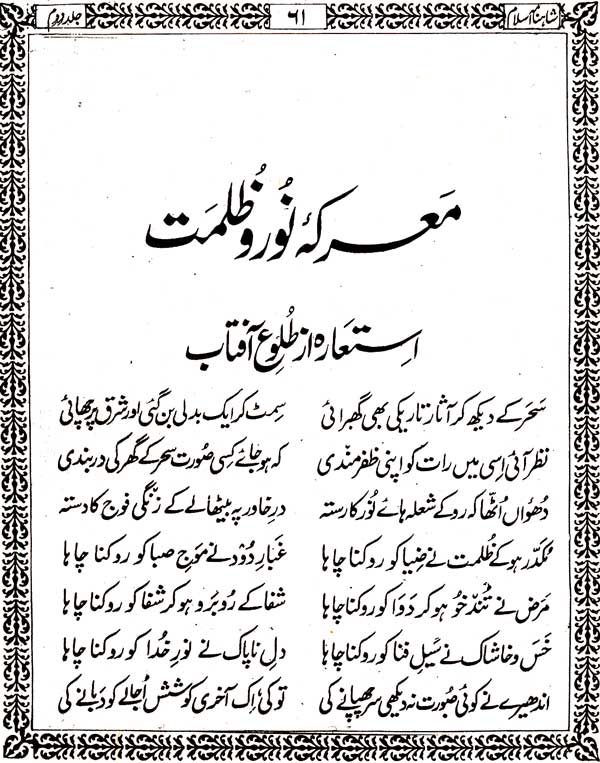 شاہنامۂ اسلام ۶۱ جلد دوم
معرکۂ نُور و ظُلمَت
اِستعارہ از طُلوُعِ آفتاب
سَحَر کے دیکھ کر آثار تاریکی بھی گھبرائی سِمٹ کر ایک بدلی بن گئی اور شرق پر چھائی
نظر آئی اِسی میں رات کو اپنی ظفرمندی کہ ہو جائے کِسی صُورت سحر کے گھر کی در بندی
دھُوٴاں اُٹھا کہ روکے شعلہ ہائے نُور کا رستہ درِ خاور پہ بیٹھا لے کے زنگی فوج کا دستہ
مُکدّر ہو کے ظُلمت نے ضِیا کو روکنا چاہا غُبارِ دُوْد نے مَوجِ صبا کو روکنا چاہا
مَرَض نے تُنْدخُو ہو کر دَوَا کو روکنا چاہا شفا کے رُوبرو ہو کر شفا کو روکنا چاہا
خَس و خاشاک نے سَیلِ فنا کو روکنا چاہا دلِ ناپاک نے نورِ خُدا کو روکنا چاہا
اندھیرے نے کوئی صُورت نہ دیکھی سر چھپانے کی تو کی اِک آخری کوشش اُجالے کو دبانے کی